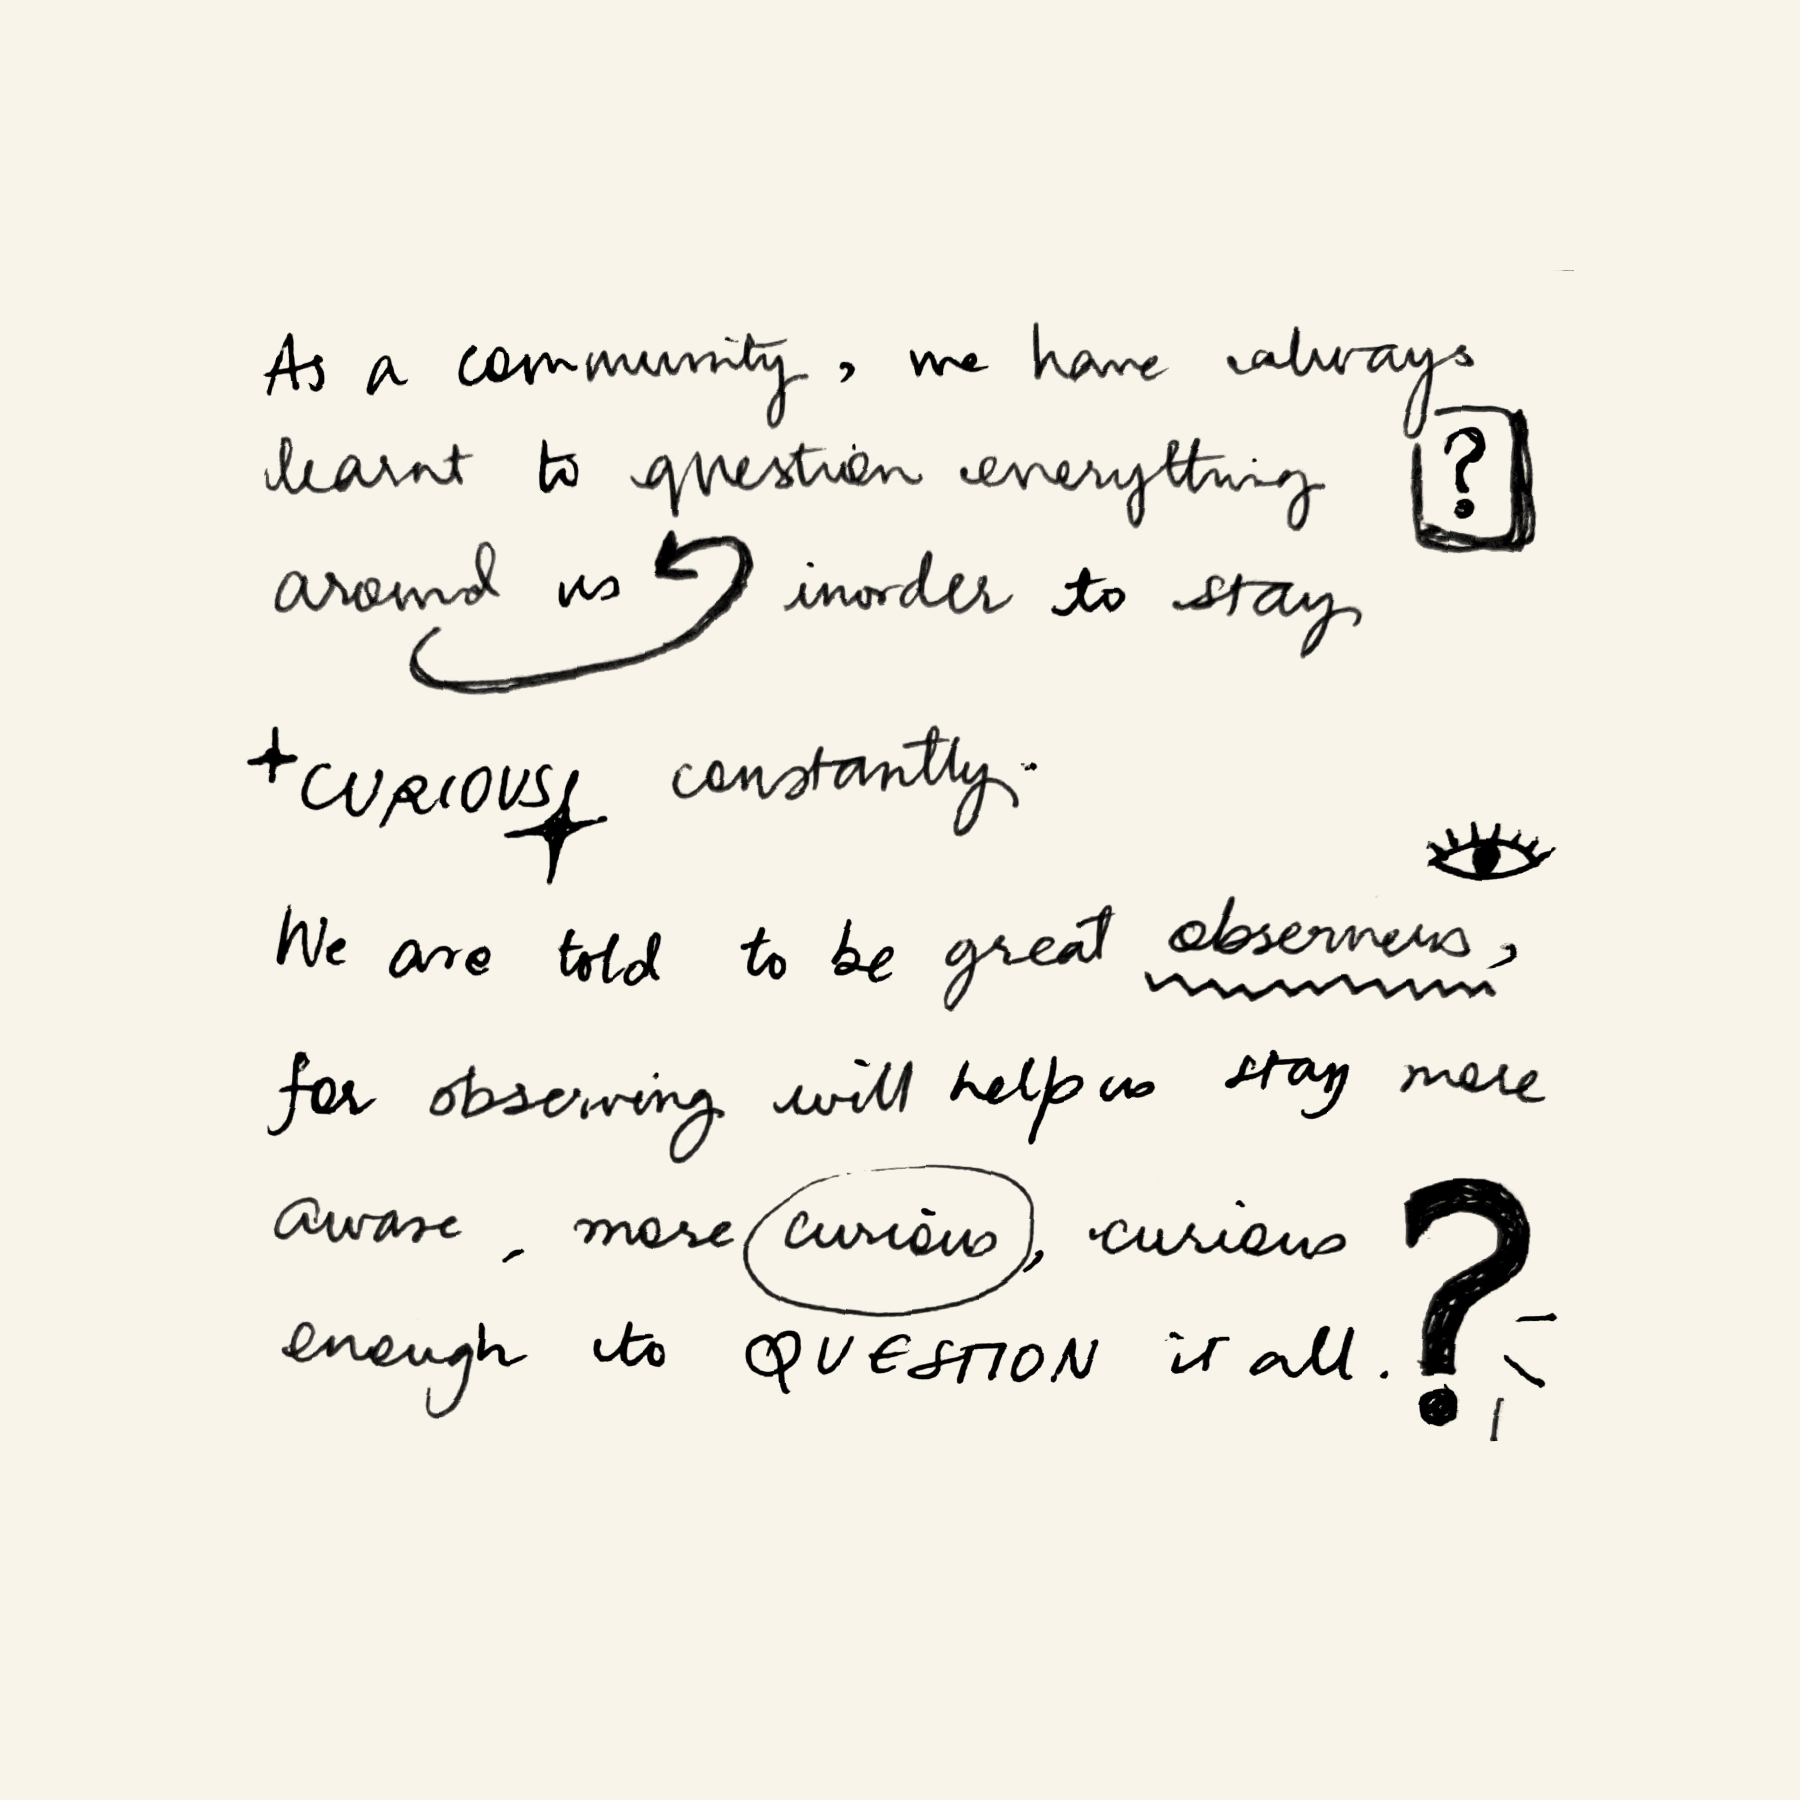 As a community, we have always
learnt to question everything ?
around us inorder to stay
CURIOUS constantly.
We are told to be great observers,
for observing will help us stay more
aware, more curious, curious
enough to QUESTION it all. ?